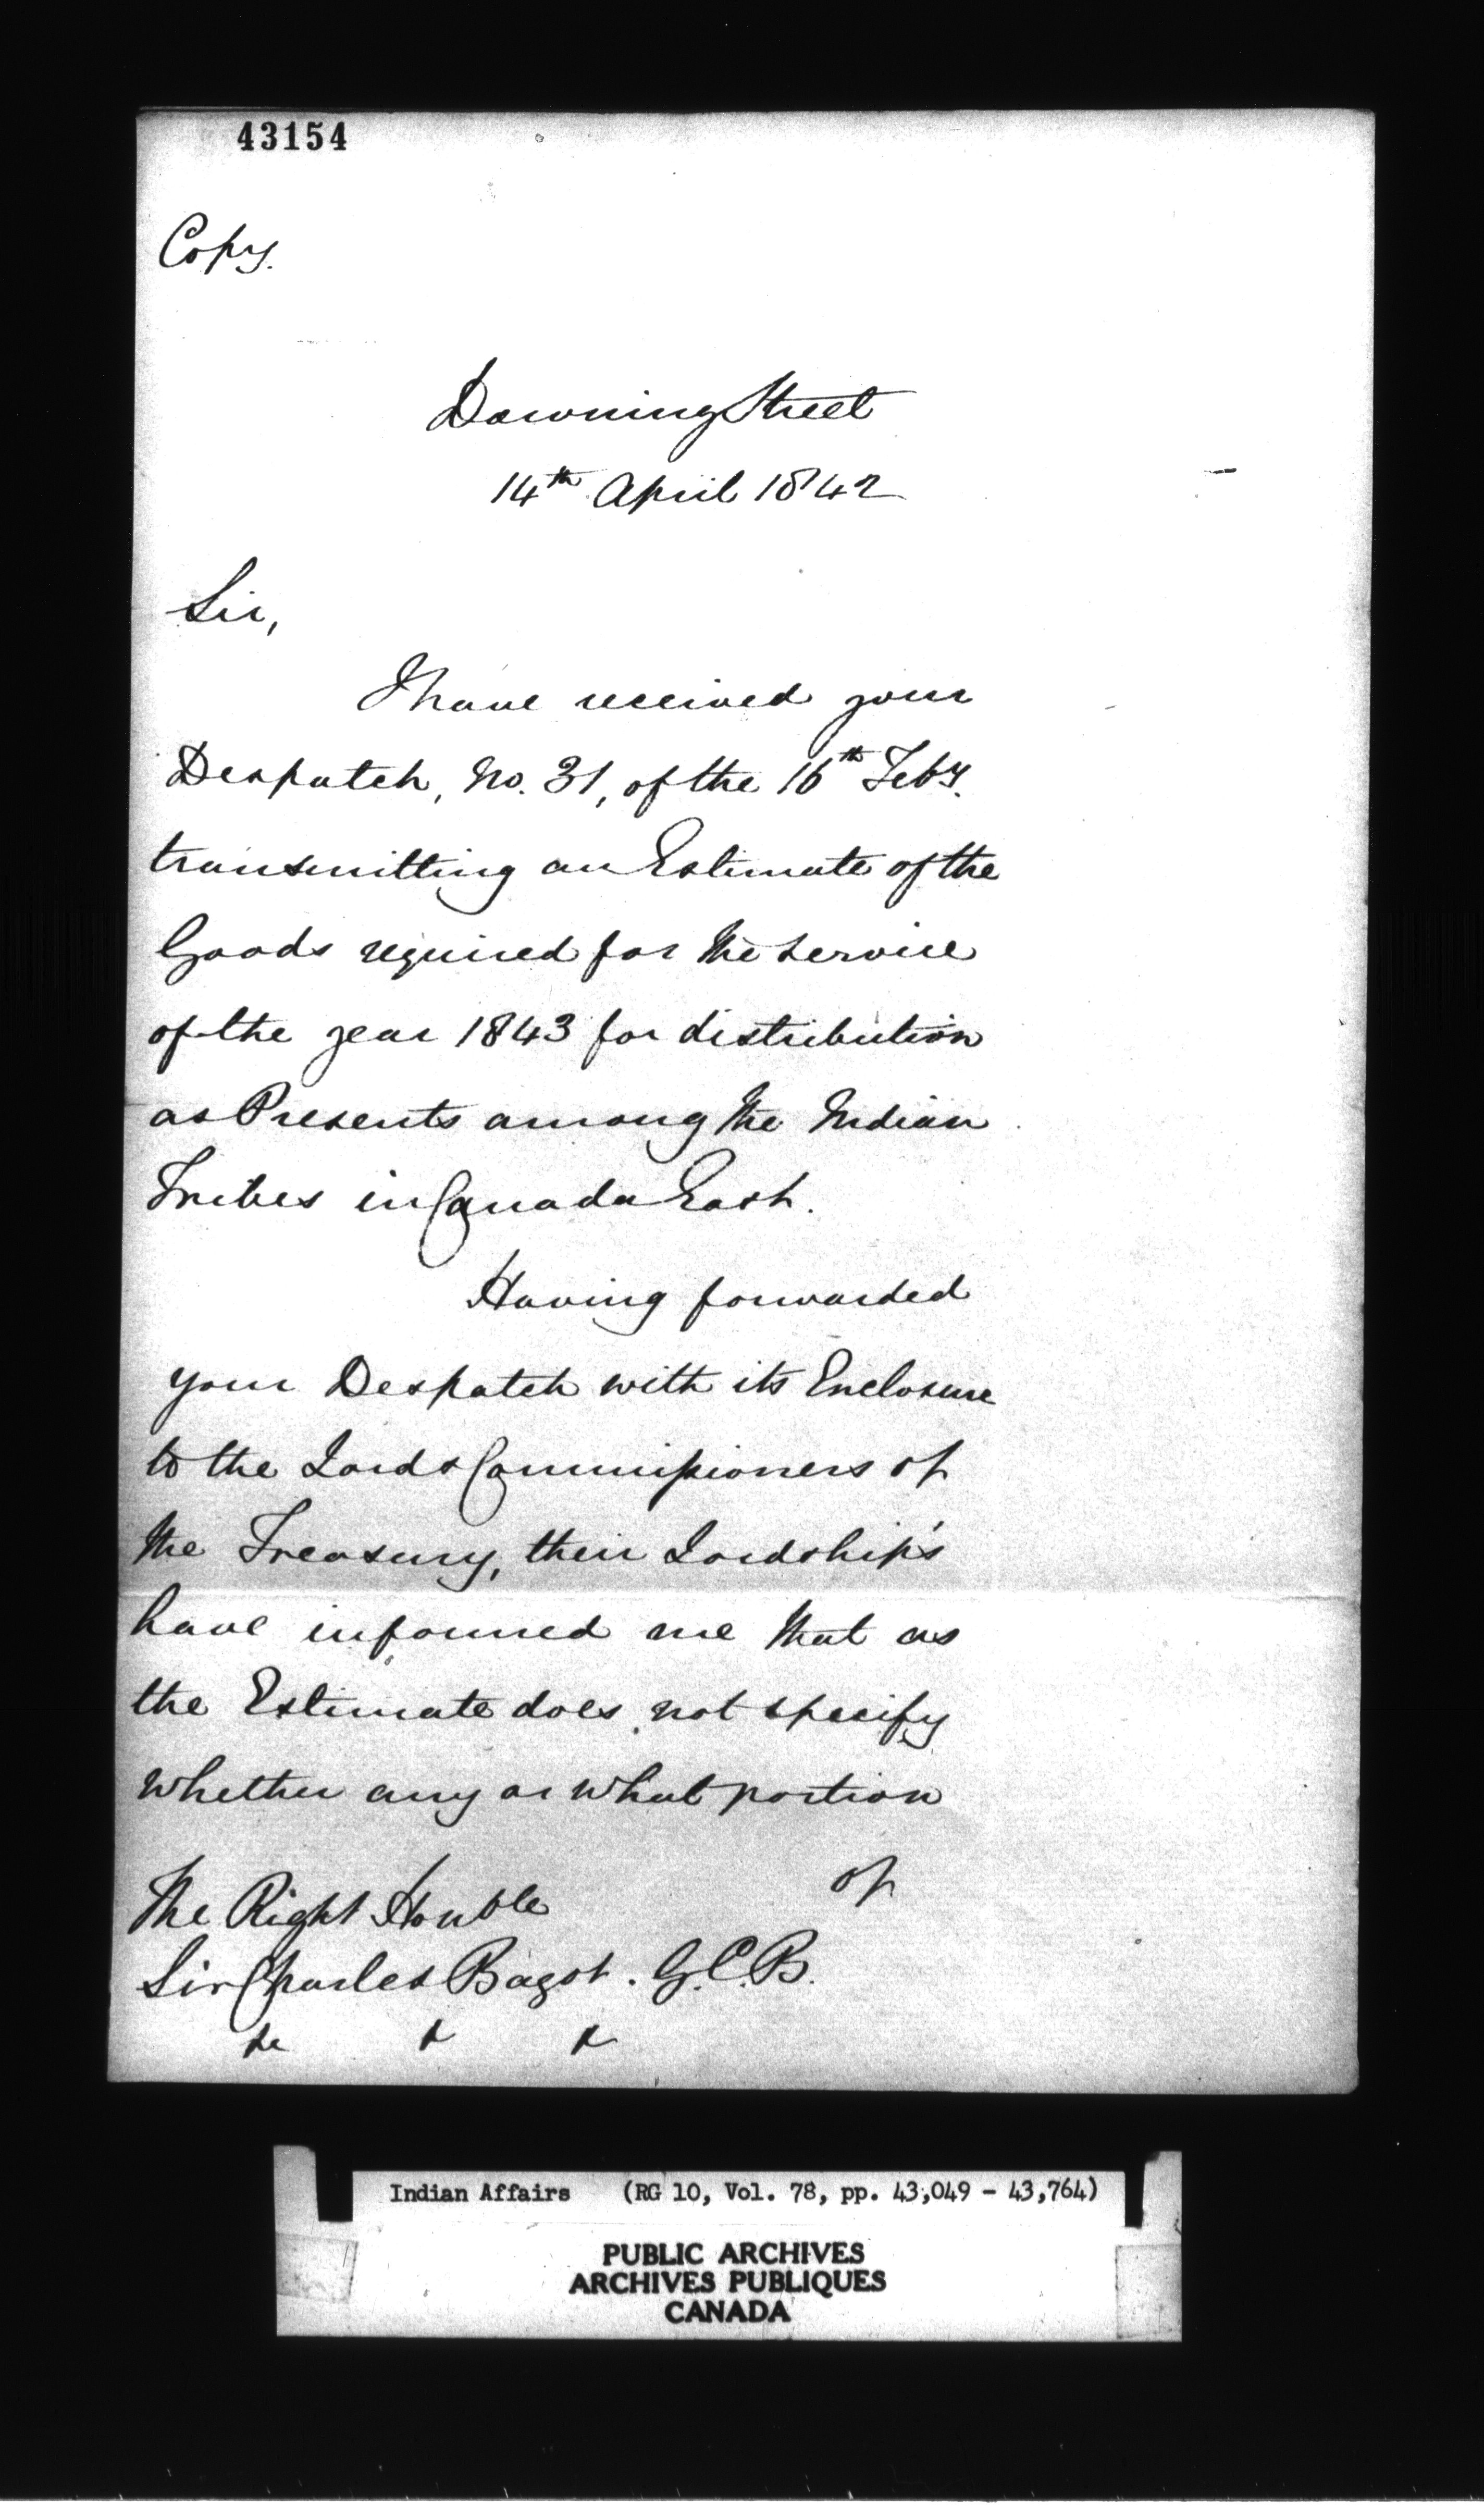 43154
Copy.
Downing Street
14th April 1842
Sir,
I have received your
Despatch, No. 31, of the 16th Feby.
transmitting an Estimate of the
Goods required for the service
of the year 1843 for distribution
as Presents among the Indian
Tribes in Canada East.
Having forwarded
your Despatch with its Enclosure
to the Lords Commissioners of
the Treasury, their Lordship's
have informed me that as
the Estimate does not specify
whether any or what portion
of
The Right Honble
Sir Charles Bagot. G.C.B.
&c & &
Indian Affairs (RG 10, Vol. 78, pp. 43,049 - 43,764)
PUBLIC ARCHIVES
ARCHIVES PUBLIQUES
CANADA